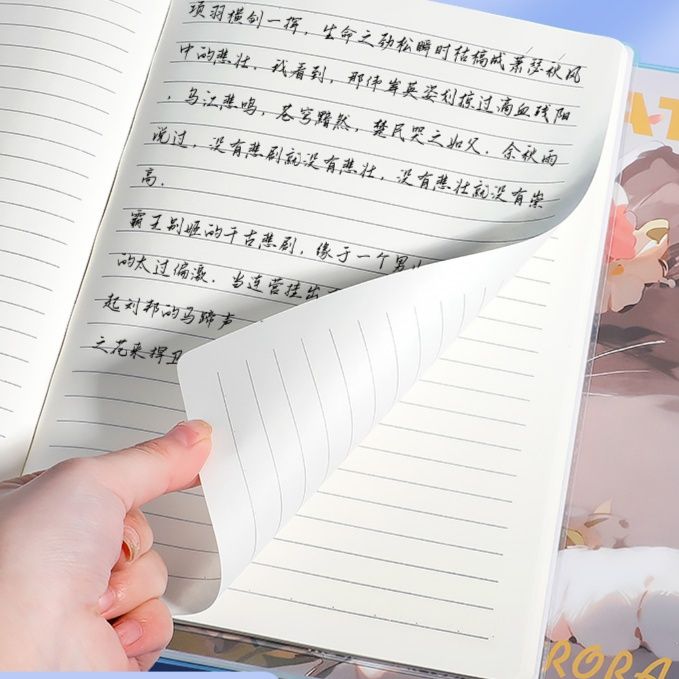 项羽横剑一挥，生命之劲松瞬时枯槁成萧瑟秋风
中的悲壮，我看到，那伟岸英姿划掠过滴血残阳
，乌江悲鸣，苍穹黯然，楚民哭之如父．余秋雨
说过，没有悲剧就没有悲壮，没有悲壮就没有崇
高．
霸王别姬的千古悲剧，缘于一个男
的太过偏激．当连营挂出
起刘邦的马蹄声
之花来捍卫
RORA